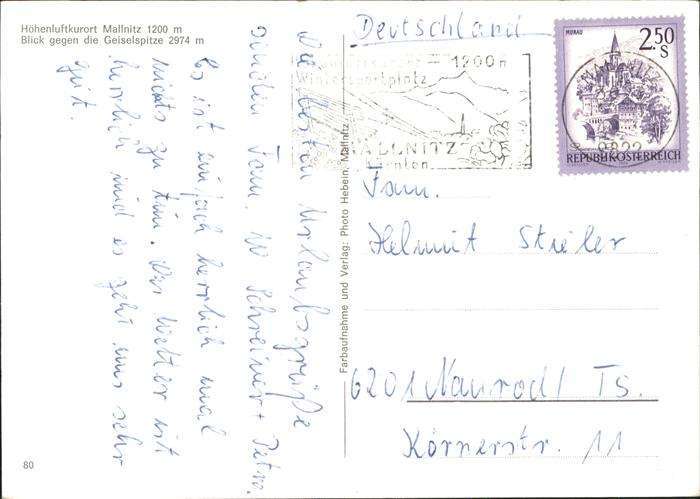 Höhenluftkurort Mallnitz 1200 m
Blick gegen die Geiselspitze 2974 m
Die besten Urlaubsgrüße
senden Fam. W. Schreiner + Petra.
Es ist einfach herrlich mal
nichts zu tun. Das Wetter ist
herrlich und es geht uns sehr
gut.
80
Farbaufnahme und Verlag: Photo Hebein, Mallnitz
Deutschland
1200m
MALLNITZ
Kärnten
MURAU
2.50
S
9822
REPUBLIK ÖSTERREICH
Fam.
Helmut Stieler
6201 Naurod/Ts.
Körnerstr. 11